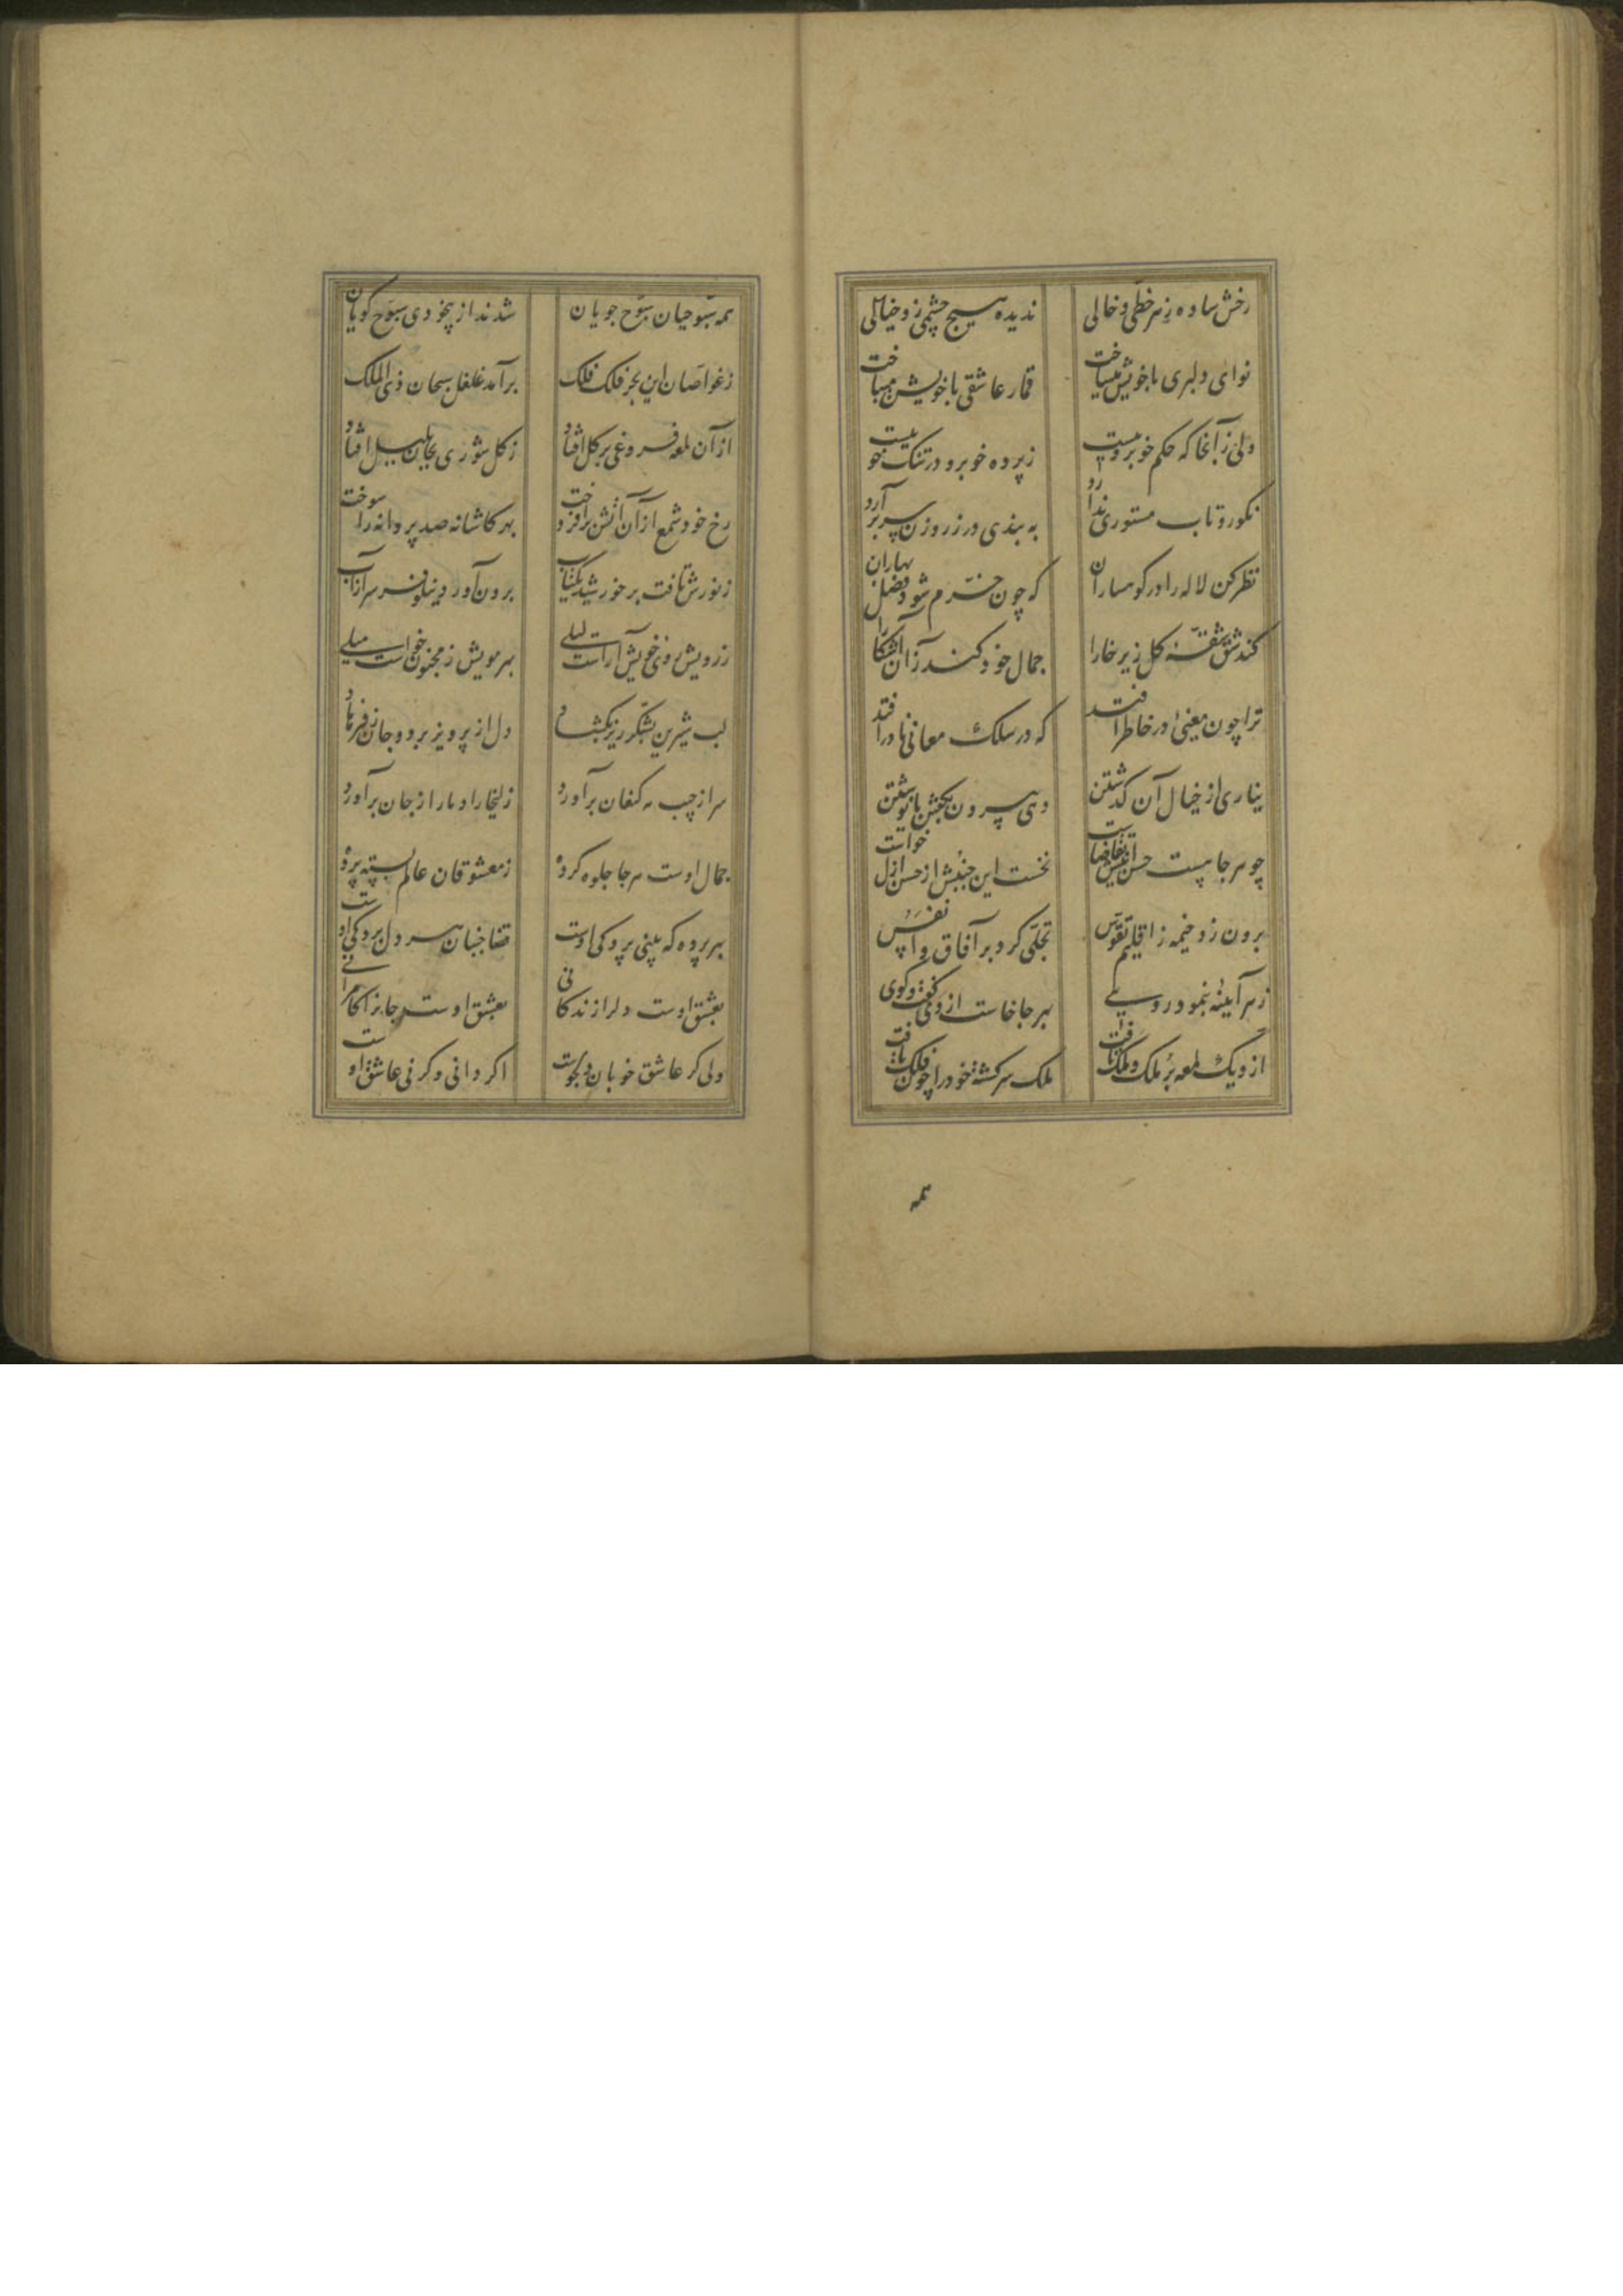 رخش ساده ز هر خطی و خالی ندیده هیچ چشمی زو خیالی
نوای دلبری با خویش میساخت قمار عاشقی با خویش میباخت
ولی زآنجا که حکم خوبرویست ز پرده خوبرو در تنک خویست
نکورو تاب مستوری ندارد به بندی در ز روزن سر برآرد
نظر کن لاله را در کوهساران که چون خرم شود فصل بهاران
کند شق شقهٔ کل زیر خارا جمال خود کند زان آشکارا
ترا چون معنیٔ در خاطر افتد که در سلک معانی نادر افتد
نیاری از خیال آن کذشتن دهی بیرون بکفتن یا نوشتن
چو هر جا هست حسن اینش تقاضاست نخست این جنبش از حسن ازل خواست
برون زد خیمه ز اقلیم تقدس تجلی کرد بر آفاق و انفس
ز هر آیینهٔ بنمود رویی بهر جا خاست از وی کفت و کوی
ازو یک لمعه بر ملک و ملک تافت ملک سرکشته خود را چون فلک یافت
همه
همه سبوحیان سبوح جویان شدند از بیخودی سبوح کویان
ز غواصان این بحر فلک فلک برآمد غلغل سبحان ذی الملک
از آن لمعه فروغی بر کل افتاد ز کل شوری بجان بلبل افتاد
رخ خود شمع از آن آتش برافروخت بهر کاشانه صد پروانه را سوخت
ز نورش تافت بر خورشید یکتاب برون آورد نیلوفر سر از آب
ز رویش روی خویش آراست لیلی بهر مویش ز مجنون خواست میلی
لب شیرین بشکر ریز بکشاد دل از پرویز برد و جان ز فرهاد
سر از جیب مه کنعان برآورد زلیخا را دمار از جان برآورد
جمال اوست هر جا جلوه کرده ز معشوقان عالم بسته پرده
بهر پرده که بینی پردکی اوست قضا جنبان هر دل بردکی اوست
بعشق اوست دلرا زندکانی بعشق اوست جانرا کامرانی
دلی کر عاشق خوبان دلجوست اکر دانی وکر نی عاشق اوست